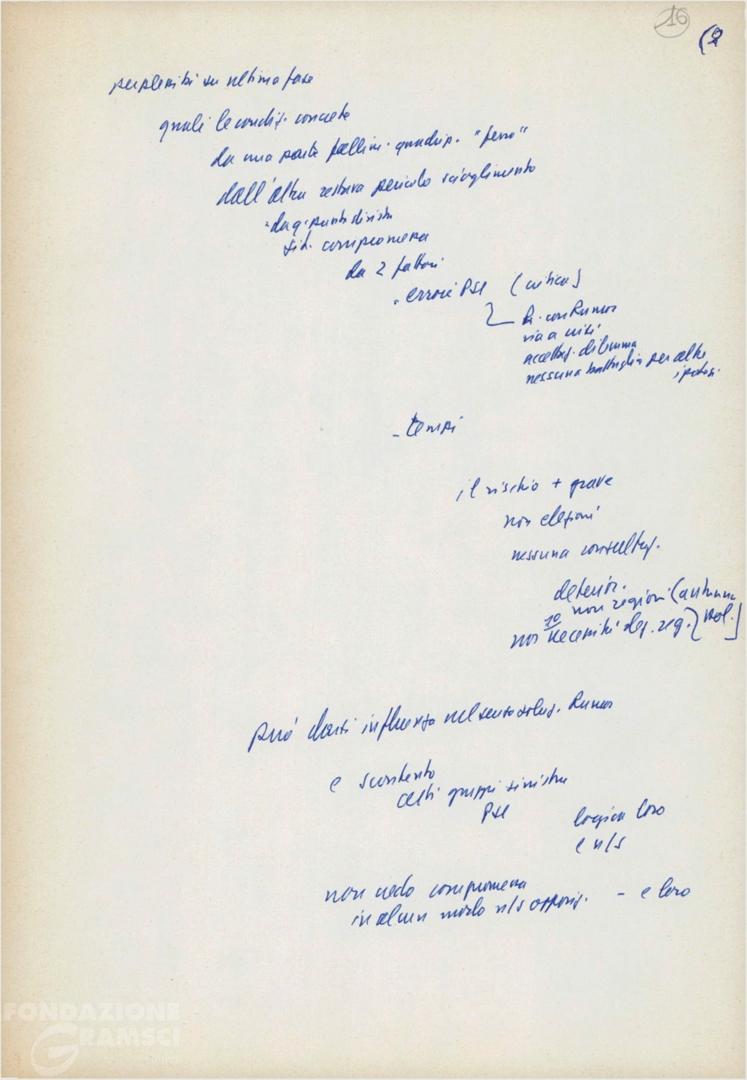 16
(2
perplessità su ultima fase
quali le condiz. concrete
da una parte fallim. quadrip. "ferro"
dall'altra restava pericolo scioglimento
da q. punto di vista
sit. compromessa
da 2 fattori
- errori PSI (critica)
con Rumor
via a crisi
accettaz. dilemma
nessuna battaglia per altre
ipotesi
- tempi
il rischio + grave
non elezioni
nessuna consultaz.
deterior.
non regioni (autunno
10
non necessità leg. reg.
può darsi influenza nel senso soluz. Rumor
e scontento
certi gruppi sinistra
PSI
logica loro
e n/s
non vedo compromessa
in alcun modo n/s opposiz. - e loro
FONDAZIONE
GRAMSCI